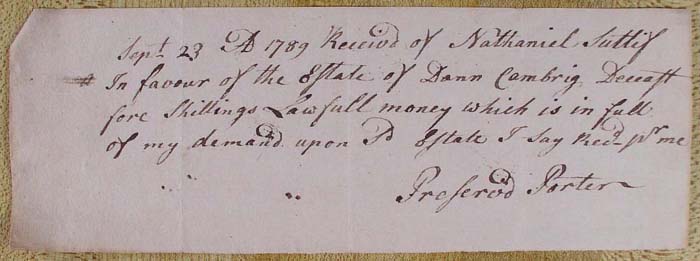 Sept 23 AD 1789 Receivd of Nathaniel Suttlif
In favour of the Estate of Dann Cambrig Deceast
fore Shillings Lawfull money which is in full
of my demand upon sd Estate I Say Recd pr me
Preservd Porter